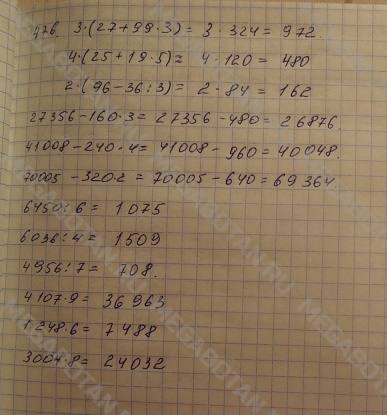 476. 3·(27+99·3)= 3·324=972
4·(25+19·5)= 4·120=480
2·(96-36:3)= 2·84=162
27356-160·3=27356-480=26876.
41008-240·4=41008-960=40048.
70005-320·2=70005-640=69364
6450:6=1075
6036:4=1509
4956:7=708.
4107·9=36963
1248·6=7488
3004·8=24032
MEGABOTAN.RU